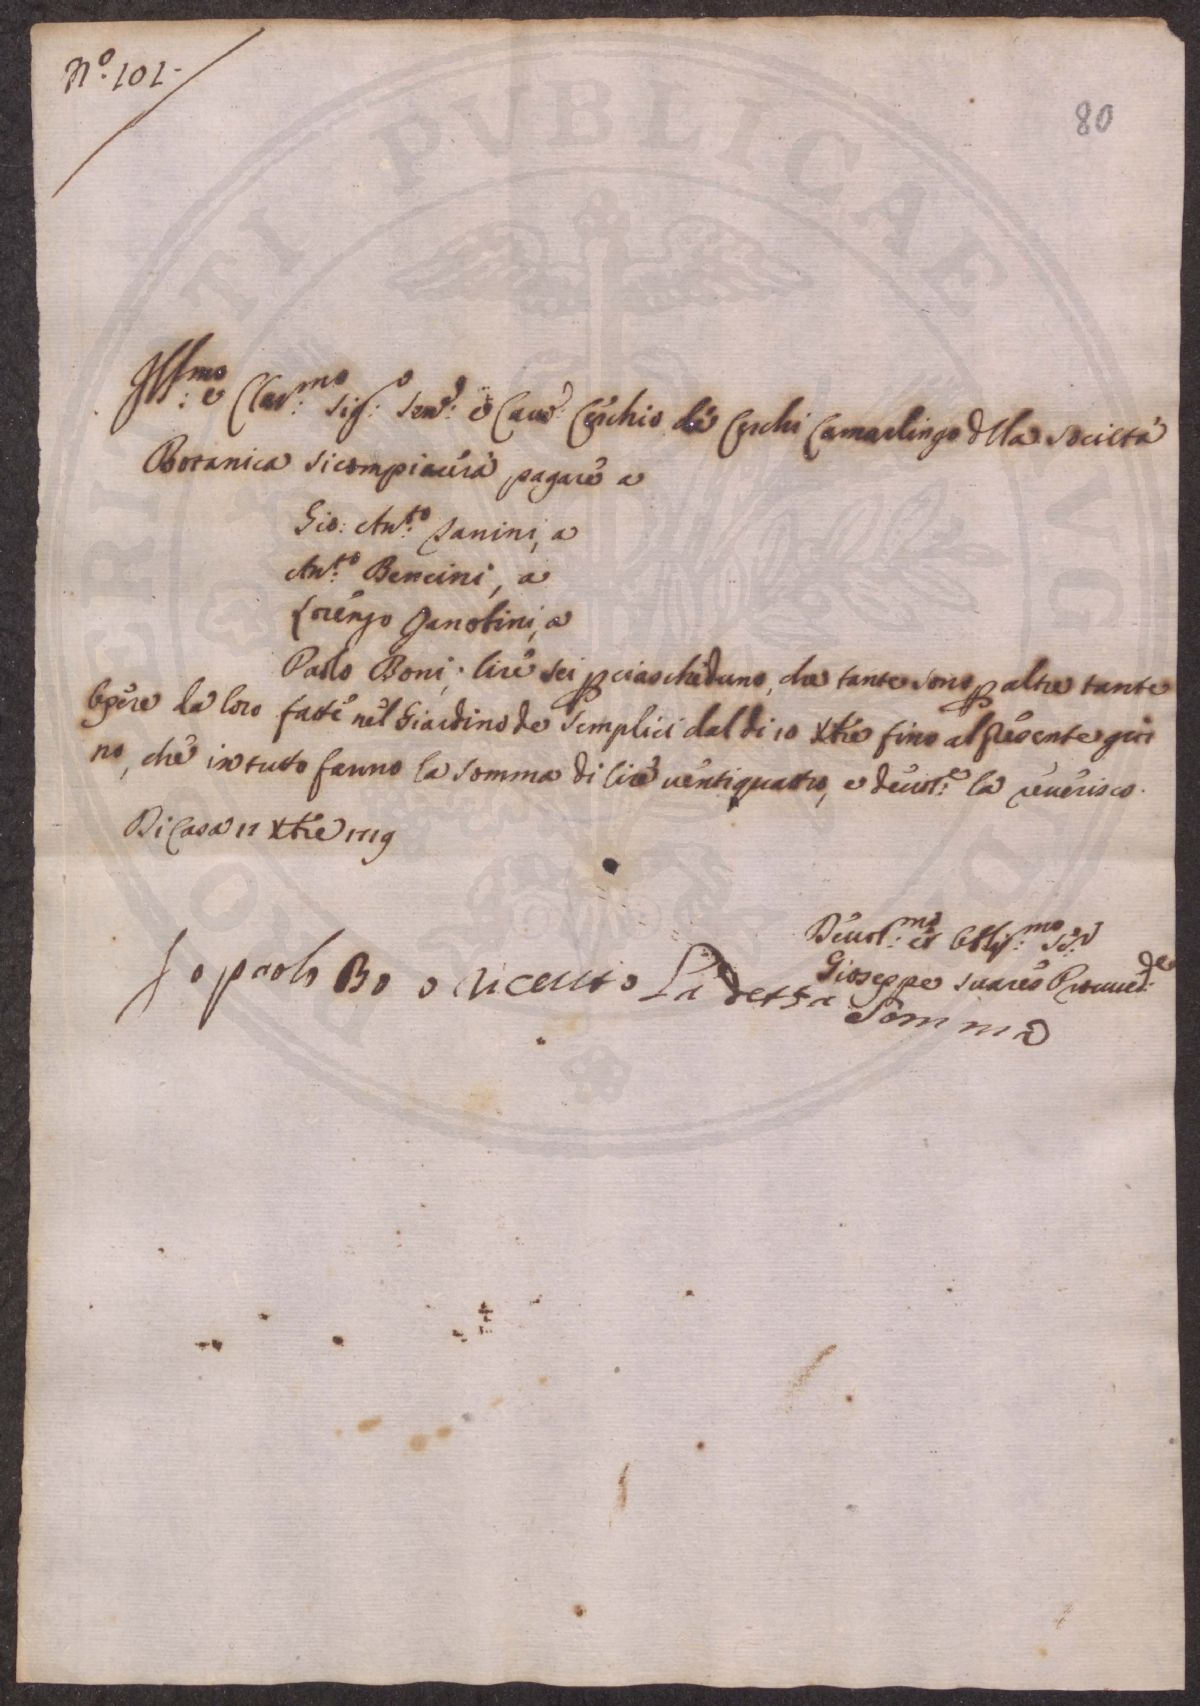 N.º 101.
80
Ill:mo e Clar:mo Sig:o Sen:e e Cav:e Cerchio de Cerchi Camarlingo della Società
Botanica si compiacerà pagare a
Gio: Ant:o Zanini, a
Ant:o Bencini, a
Lorenzo Zanobini, a
Paolo Boni, lire sei p ciascheduno, che tante sono p altre tante
opere da loro fatte nel Giardino de Semplici dal di 10 Xbre fino al presente gior
no, che in tutto fanno la somma di lire ventiquattro, e devot:e la reverisco.
Di Casa 17 Xbre 1719
Devot:mo et Obblig:mo Se:re
Giuseppe Suares Provved:re
Io paolo Bo o ricevuto La detta Somma